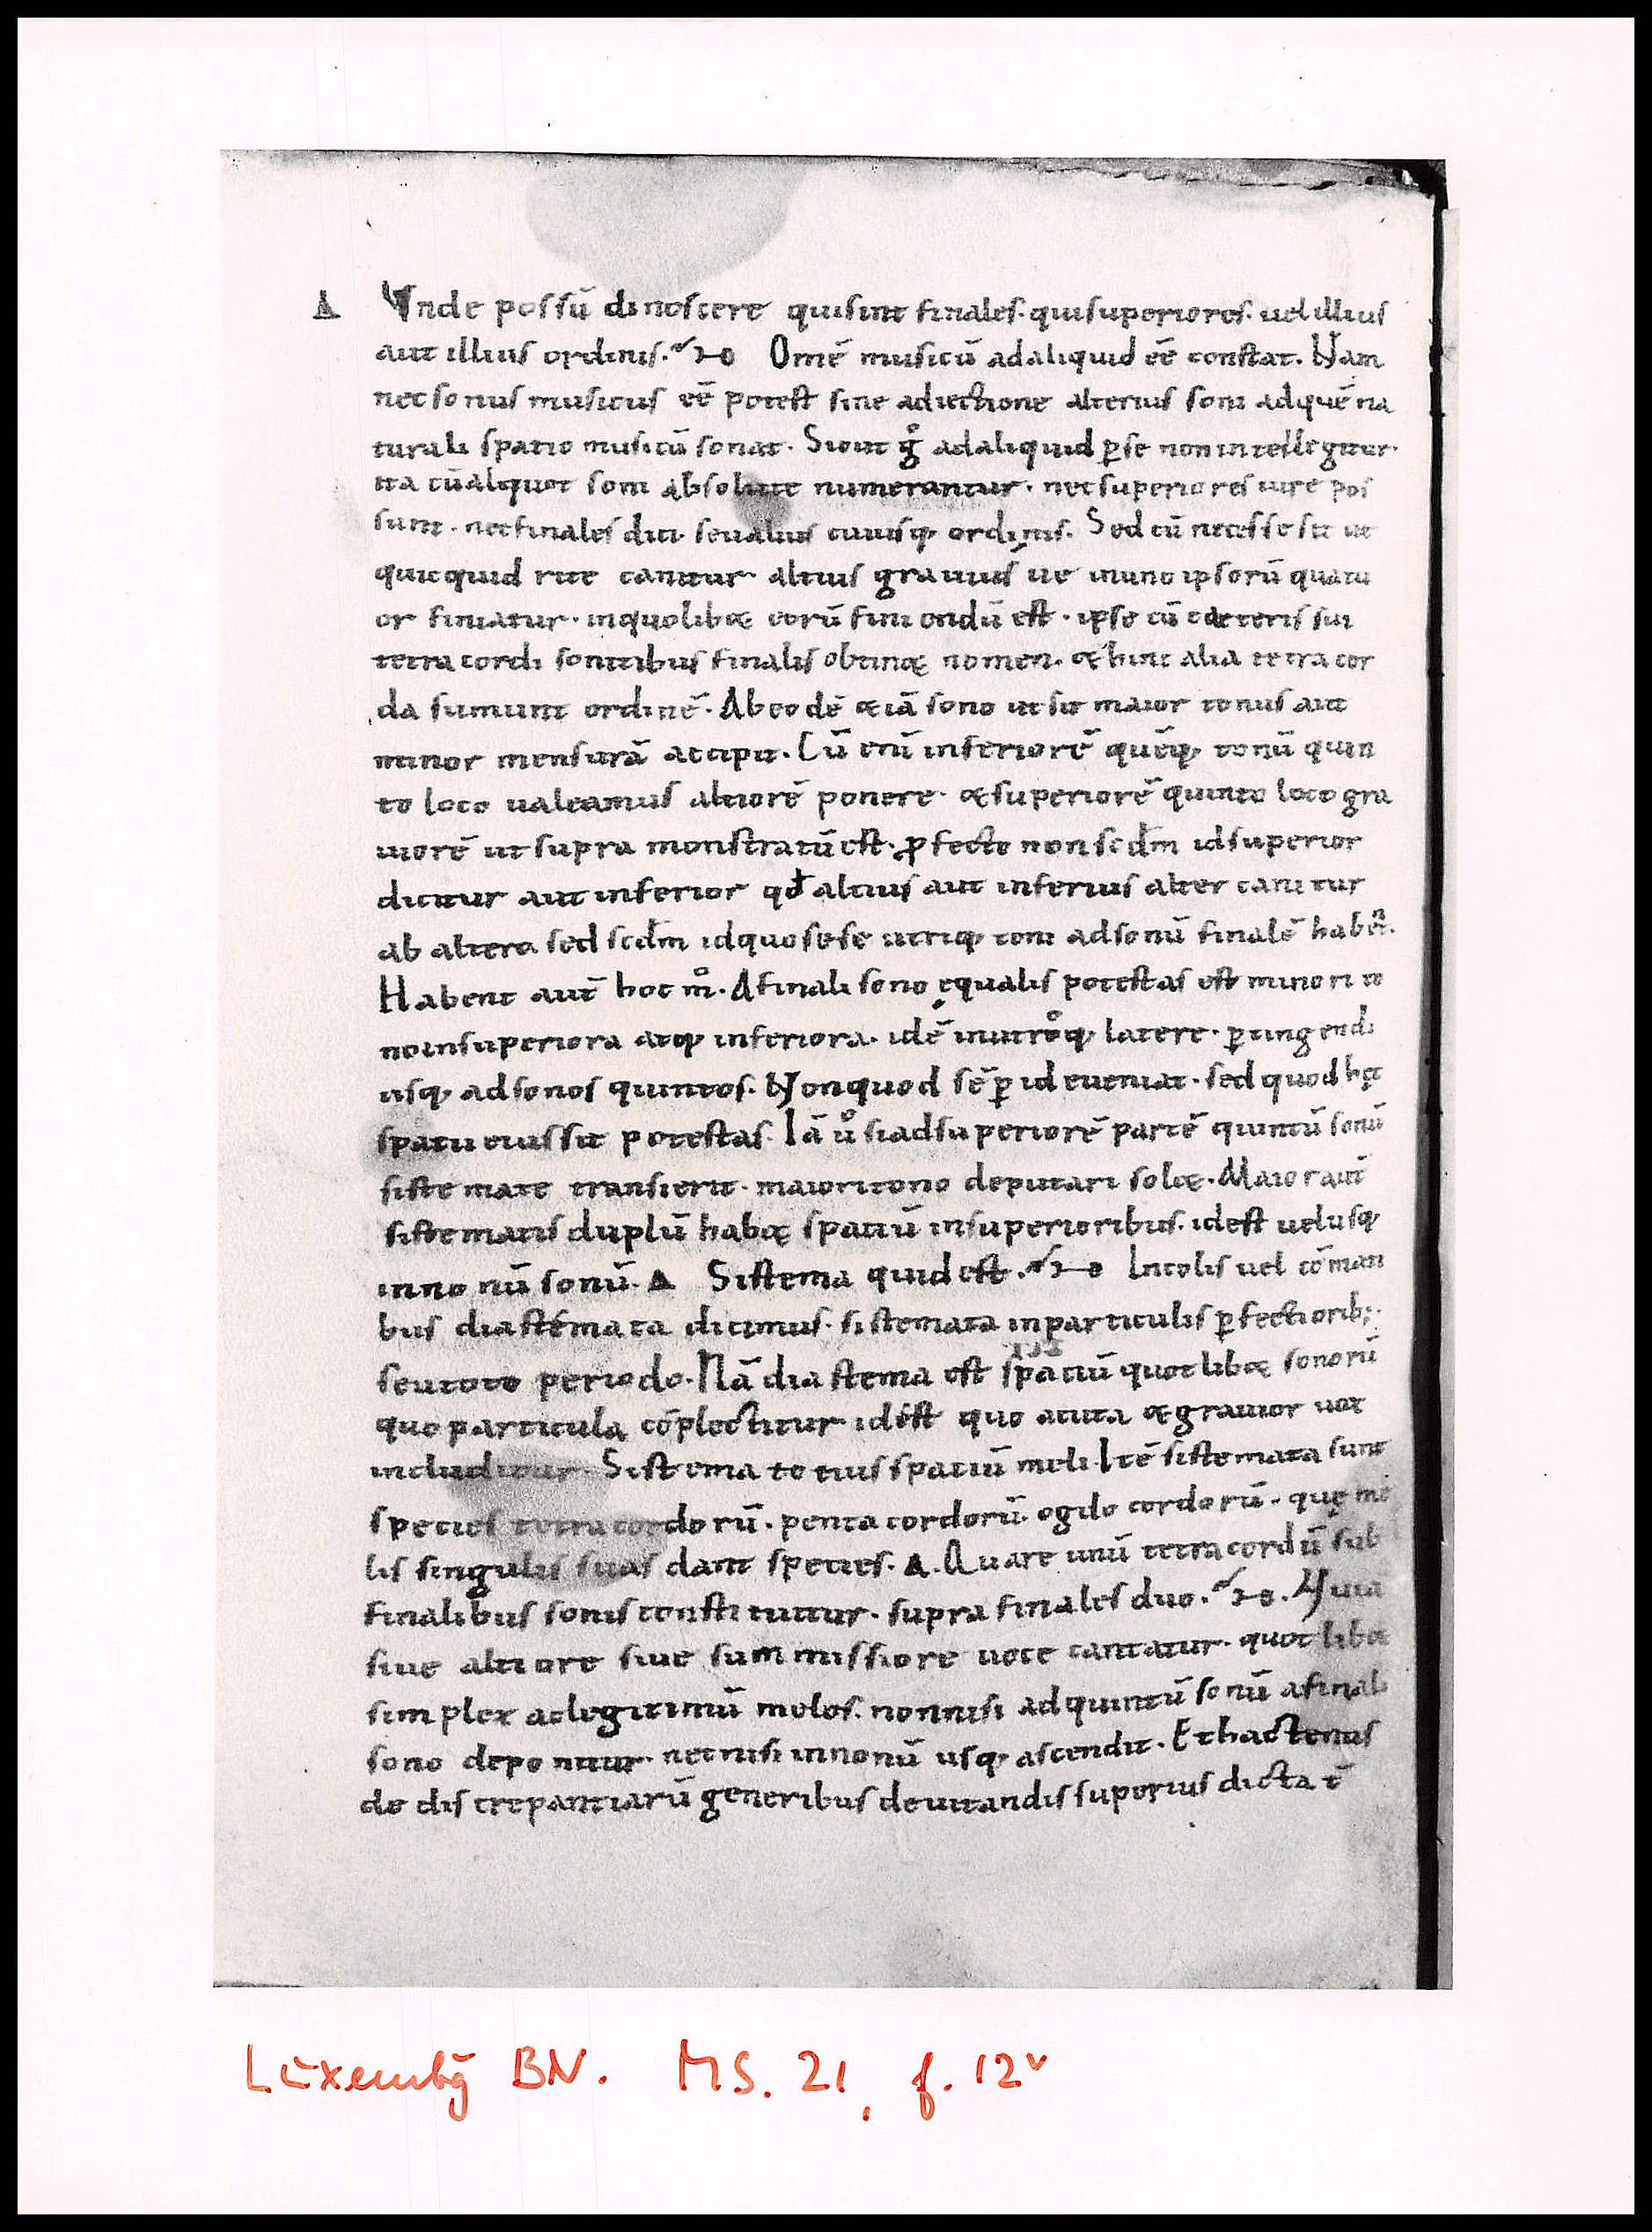 Δ Vnde possū dinoscere quisint finales. quisuperiores. uel illius
aut illius ordinis. Omē musicū adaliquid eē constat. Nam
nec sonus musicus eē potest sine adiectione alterius soni adquē na
turali spatio musicū sonat. Sicut g̊ adaliquid ꝑse non intellegitur.
ita cū aliquot soni absolute numerantur. nec superiores iure pos
sunt. nec finales dici. seu alius cuiusq; ordinis. Sed cū necesse sit ut
quicquid rite canitur altius grauius ue inuno ipsorū quatu
or finiatur. inquolibæ eorū finiendū est. ipse cū cæteris sui
tetracordi sonitibus finalis obtinæ nomen. & hinc alia tetracor
da sumunt ordinē. Abeodē &iā sono ut sit maior tonus aut
minor mensurā accipit. Cū enī inferiorē quēq; tonū quin
to loco ualeamus altiorē ponere. & superiorē quinto loco gra
uiorē ut supra monstratū est. ꝓfecto non scdm̄ id superior
dicitur aut inferior qđ altius aut inferius alter canitur
ab altero sed scdm̄ idquo sese utriq; toni adsonū finalē habēt.
Habent aūt hoc m̊. Afinali sono ęqualis potestas est minori to
no insuperiora atq; inferiora. idē inutroq; latere. ꝑtingendi
usq; adsonos quintos. Non quod sēꝑ id eueniat. sed quod hęc
spatii eius sit potestas. Iā ů si adsuperiorē partē quintū sonū
sistemate transierit. maioritono deputari solæ. Maior aūt
sistematis duplū habæ spatiū insuperioribus. idest uelusq;
innonū sonū. Δ Sistema quid est. Incolis uel cōmati
bus diastémata dicimus. sistemata inparticulis ꝑfectiorib;
seu toto periodo. Nā diastema est spatiū quotlibæ sonorū
quo particula cōplectitur idést quo acuta & grauior uox
includitur. Sistema totius spatiū meli. Itē sistemata sunt
species tetracordorū. pentacordorū. ogdocordorū. quę me
lis singulis suas dant species. Δ. Quare unū tetracordū sub
finalibus sonis constituitur. supra finales duo. Quia
siue altiore siue summissiore uoce cantatur. quotlibæ
simplex aclegitimū melos. nonnisi adquintū sonū afinali
sono deponitur. nec nisi innonū usq; ascendit. Et hactenus
de discrepantiarū generibus deuitandis superius dicta ē
Luxembg BN. MS. 21, f. 12v